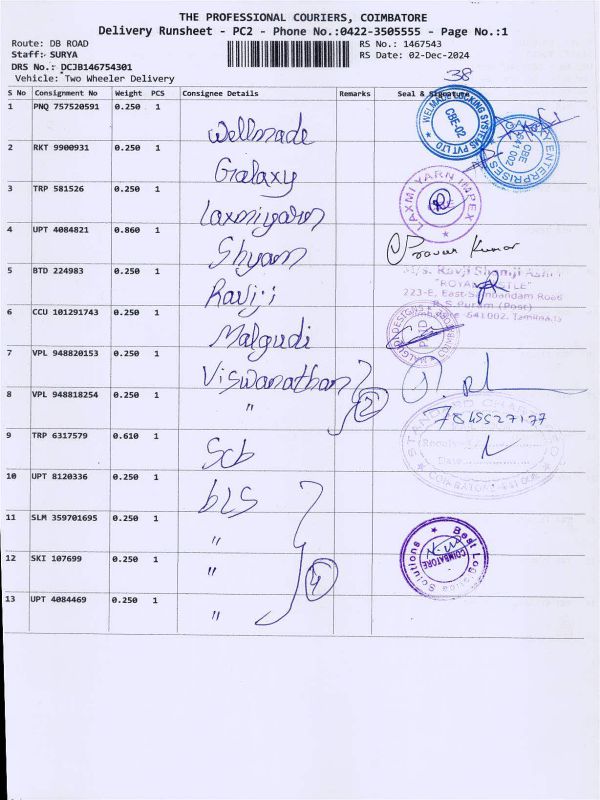 THE PROFESSIONAL COURIERS, COIMBATORE
Delivery Runsheet - PC2 - Phone No.:0422-3505555 - Page No.:1
Route: DB ROAD
Staff: SURYA
DRS No.: DCJB146754301
Vehicle: Two Wheeler Delivery
RS No.: 1467543
RS Date: 02-Dec-2024
38
S No Consignment No Weight PCS Consignee Details Remarks Seal & Signature
1 PNQ 757520591 0.250 1 Wellmade
WELMADE LOCKING SYSTEMS PVT LTD CBE-02
2 RKT 9900931 0.250 1 Galaxy
GALAXY ENTERPRISES CBE 641 002
3 TRP 581526 0.250 1 Laxmiyarn
LAXMI YARN IMPEX
4 UPT 4084821 0.860 1 Shyam
Pravin Kumar
5 BTD 224983 0.250 1 Ravji
M/s. Ravji Shamji Ashr
"ROYAL CASTLE"
223-E, East Sambandam Road
R.S.Puram (Post)
Coimbatore-641002. Tamilnadu
6 CCU 101291743 0.250 1 Malgudi
MALGUDI DESIGNS
7 VPL 948820153 0.250 1 Viswanathan
8 VPL 948818254 0.250 1 "
2
7845527177
9 TRP 6317579 0.610 1 Scb
STANDARD CHARTERED
Received
Date
COIMBATORE - 641 002
10 UPT 8120336 0.250 1 bLS
11 SLM 359701695 0.250 1 "
Best Logistics Solutions COIMBATORE
12 SKI 107699 0.250 1 "
4
13 UPT 4084469 0.250 1 "